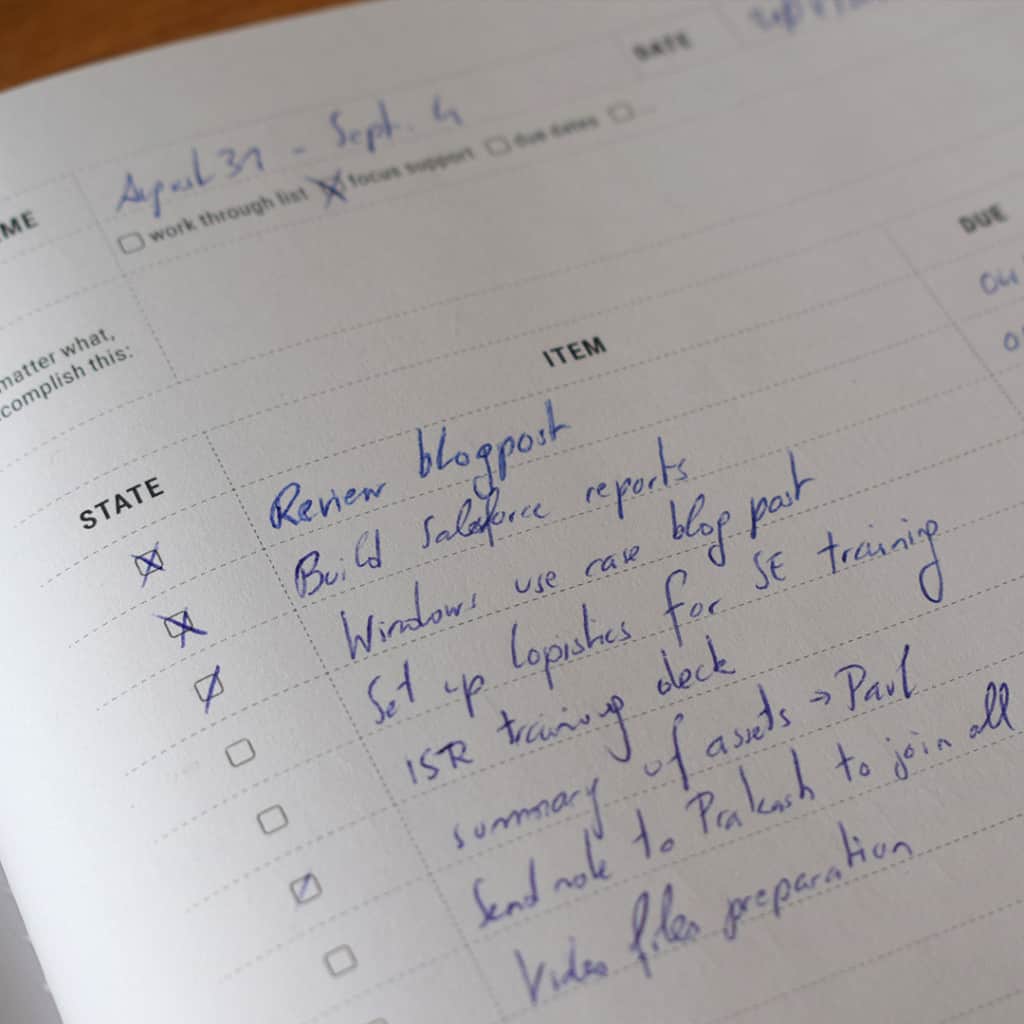 DATE
August 31 - Sept. 4
work through list focus support due dates
matter what,
complish this:
DUE
ITEM
STATE
Review blogpost
Build Salesforce reports
Windows use case blog post
Set up logistics for SE training
ISR training deck
summary of assets → Paul
Send note to Prakash to join all
Video files preparation